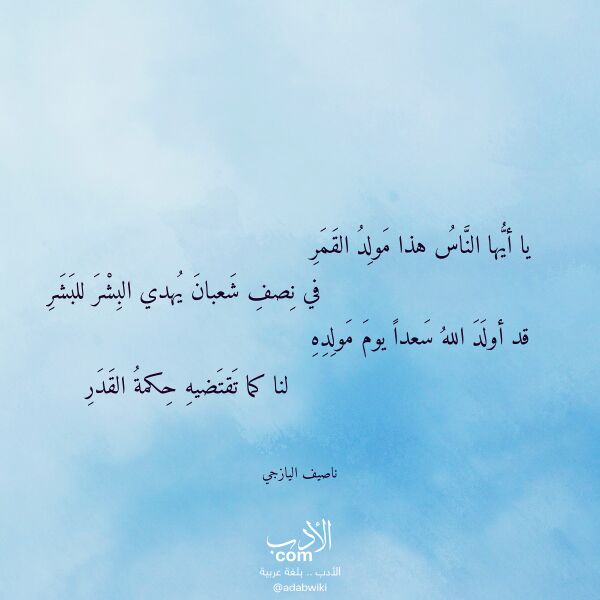 يا أيُّها النَّاسُ هذا مَولِدُ القَمَرِ
في نِصفِ شَعبانَ يُهدي البِشْرَ للبَشَرِ
قد أولَدَ اللهُ سَعداً يومَ مَولِدِهِ
لنا كما تَقتَضيهِ حِكمةُ القَدَرِ
ناصيف اليازجي
الأدب
com
الأدب .. بلغة عربية
@adabwiki